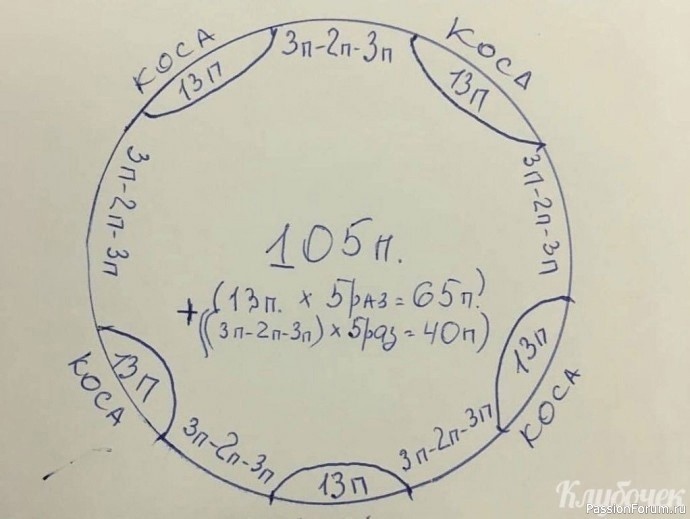 КОСА
13п
3п-2п-3п
КОСА
13п
3п-2п-3п
3п-2п-3п
105п.
+(13п. х 5раз=65п.)
((3п-2п-3п)х5раз=40п)
13п
КОСА
13п
КОСА
3п-2п-3п
3п-2п-3п
13п
Клубочек
PassionForum.ru